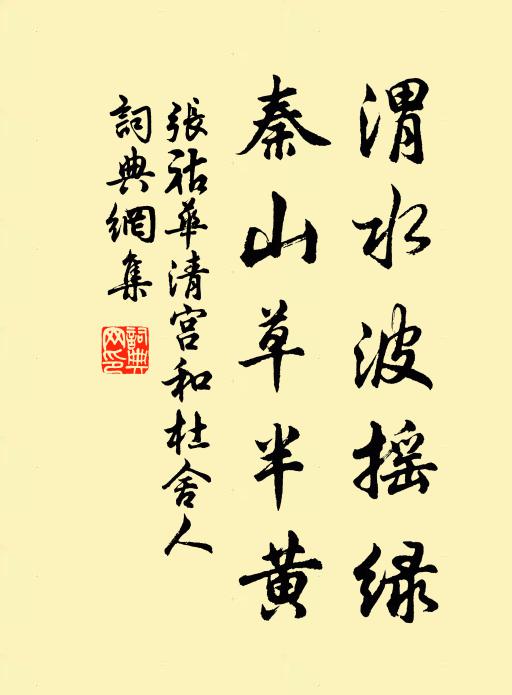 渭水波摇绿
秦山草半黄
張祜華清宫和杜舍人
詞典網集
詞典网印